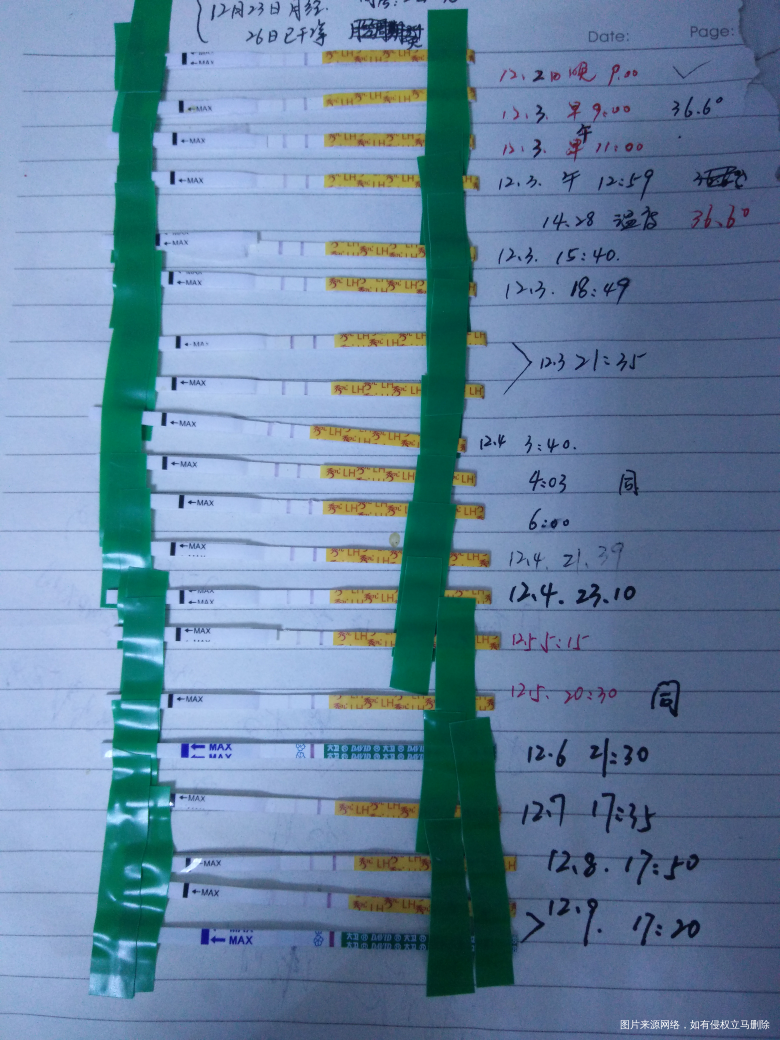 12月23日月经
26日已干净
Date:
Page:
←MAX
12.2日晚 9.00
←MAX
12.3. 早 9:00 36.6°
←MAX
12.3. 午 11:00
←MAX
12.3. 午 12:59
14.28 温度 36.6°
←MAX
12.3. 15:40.
←MAX
12.3. 18:49
←MAX LH
12.3 21:35
←MAX LH
←MAX LH
12.4 3:40.
←MAX LH
4:03 同
←MAX LH
6:00
←MAX
12.4. 21.39
←MAX
12.4. 23.10
←MAX LH
12.5 5:15
←MAX LH
12.5. 20:30 同
←MAX
12.6 21:30
←MAX LH
12.7 17:35
←MAX LH
12.8. 17:50
←MAX LH
12.9. 17:20
←MAX
图片来源网络，如有侵权立马删除